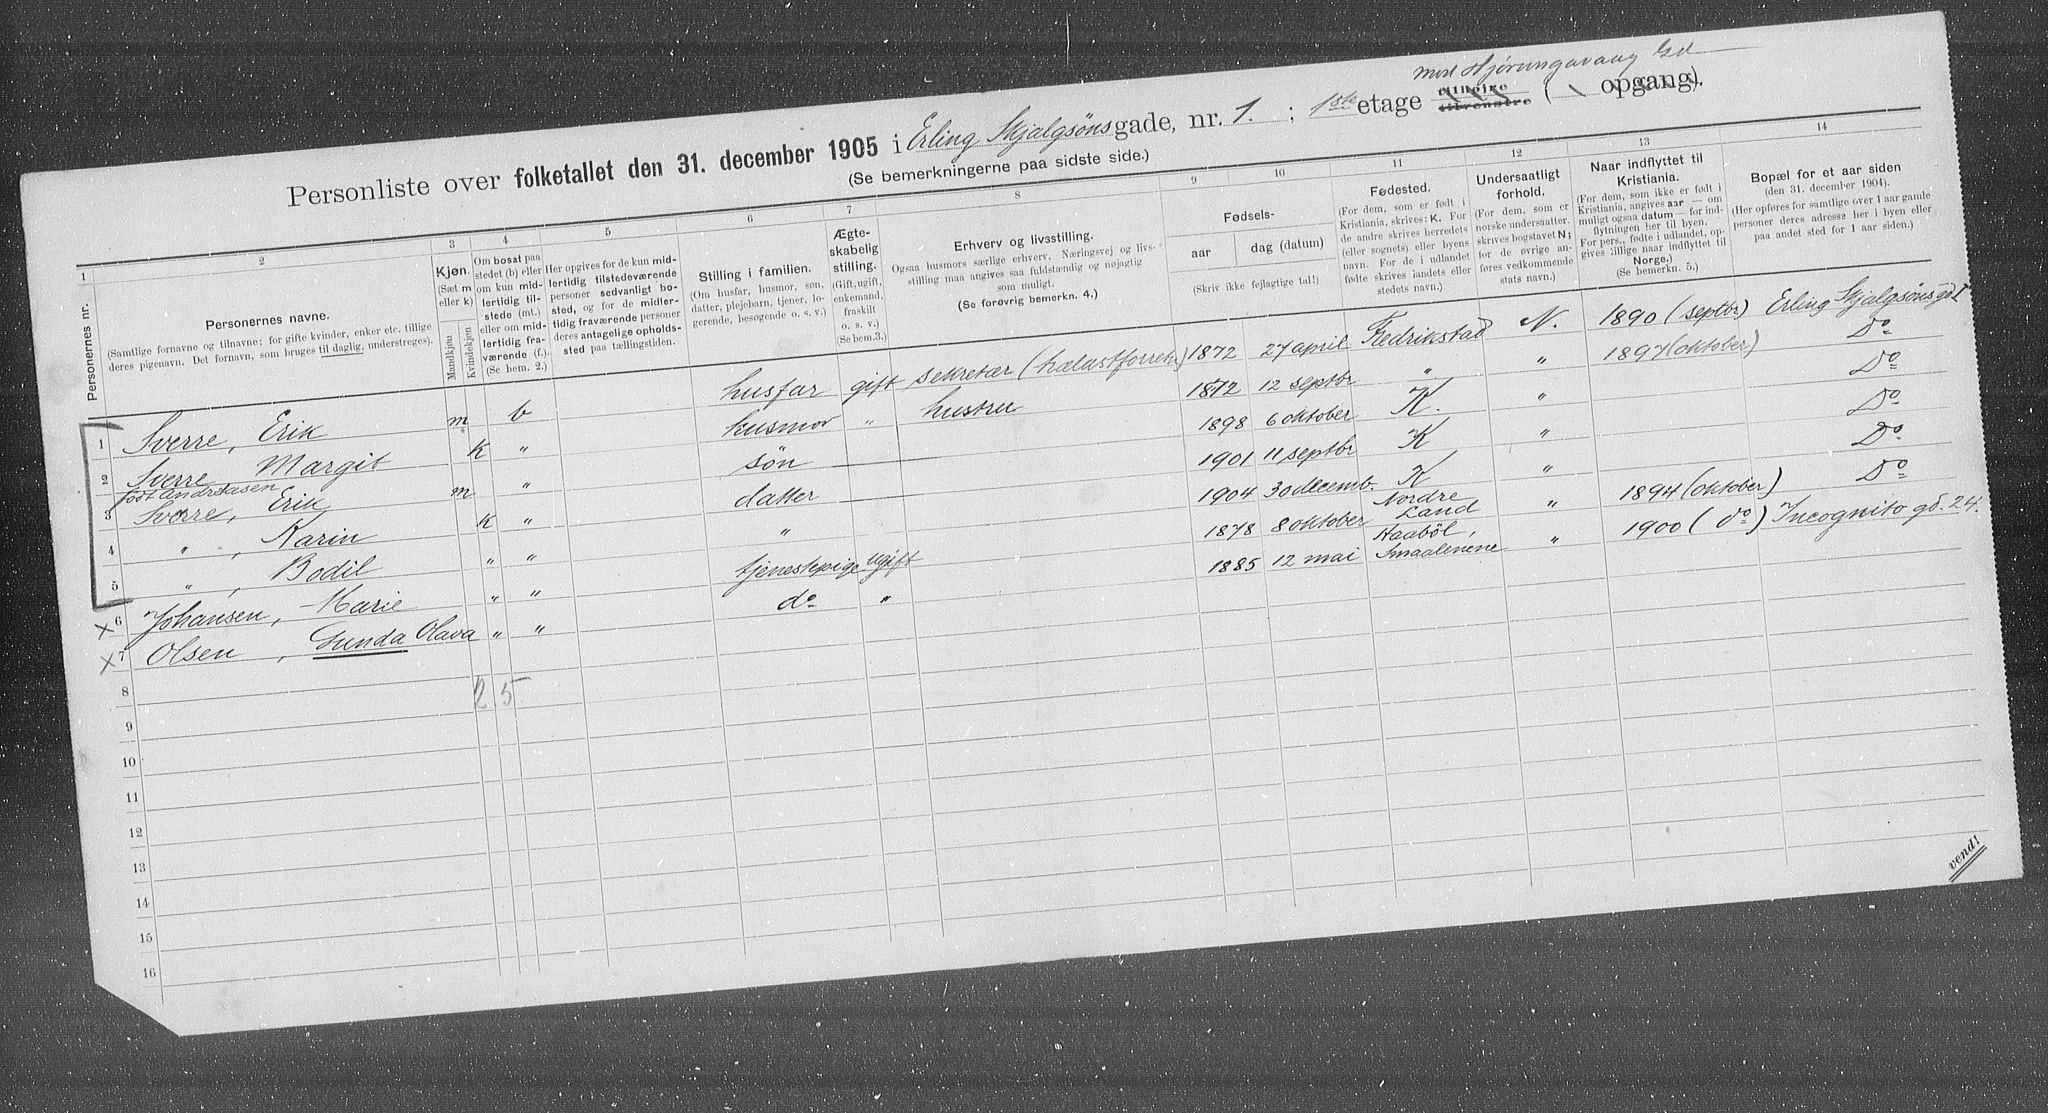 mod Hjørungavang Gd
Personliste over folketallet den 31. december 1905 i Erling Skjalgsønsgade, nr. 1. ; 1ste etage tilhøjre tilvenstre ( opgang).
(Se bemerkningerne paa sidste side.)
1 2 3 4 5 6 7 8 9 10 11 12 13 14
Personernes nr.
Personernes navne.
(Samtlige fornavne og tilnavne; for gifte kvinder, enker etc. tillige
deres pigenavn. Det fornavn, som bruges til daglig, understreges).
Kjøn.
(Sæt m
eller k)
Mandkjøn
Kvindekjøn
Om bosat paa
stedet (b) eller
om kun mid-
lertidig til-
stede (mt.)
eller om mid-
lertidig fra-
værende (f.)
(Se bem. 2.)
Her opgives for de kun mid-
lertidig tilstedeværende
personer sedvanligt bo-
sted, og for de midler-
tidig fraværende personer
deres antagelige opholds-
sted paa tællingstiden.
Stilling i familien.
(Om husfar, husmor, søn,
datter, plejebarn, tjener, lo-
gerende, besøgende o. s. v.)
Ægte-
skabelig
stilling.
(Gift, ugift,
enkemand,
fraskilt
o. s. v.)
(Se bem.3.)
Erhverv og livsstilling.
Ogsaa husmors særlige erhverv. Næringsvej og livs-
stilling maa angives saa fuldstændig og nøjagtig
som muligt.
(Se forøvrig bemerkn. 4.)
Fødsels-
aar dag (datum)
(Skriv ikke fejlagtige tal!)
Fødested.
(For dem, som er født i
Kristiania, skrives: K. For
de andre skrives herredets
(eller sognets) eller byens
navn. For de i udlandet
fødte skrives landets eller
stedets navn.)
Undersaatligt
forhold.
(For dem, som er
norske undersaatter,
skrives bogstavet N;
for de øvrige an-
føres vedkommende
stats navn.)
Naar indflyttet til
Kristiania.
(For dem, som ikke er født i
Kristiania, angives aar — om
muligt ogsaa datum — for ind-
flytningen her til byen.
For pers., fødte i udlandet, op-
gives tillige naar indflyttet til
Norge.)
(Se bemerkn. 5.)
Bopæl for et aar siden
(den 31. december 1904).
(Her opføres for samtlige over 1 aar gamle
personer deres adresse her i byen eller
paa andet sted for 1 aar siden.)
1 Sverre, Erik m b husfar gift sekretær 1872 27 april Fredrikstad N. 1890 (septbr) Erling Skjalgsøns gd 1
2 Sverre Margit k " husmor " hustru 1872 12 septbr " " 1897 (oktober) Do
født Andreasen
3 Sverre, Erik m " søn 1898 6 oktober K. " Do
4 " , Karin k " datter 1901 11 septbr K " Do
5 " , Bodil " " " 1904 30 decemb. K " Do
6 Johansen, Marie " " tjenestepige ugift 1878 8 oktober Nordre Land " 1894 (oktober) Do
7 Olsen, Gunda Olava " " do " 1885 12 mai Haabøl, Smaalenene " 1900 (do) Incognito gd. 24.
8
2 5
9
10
11
12
13
14
15
16
vend!